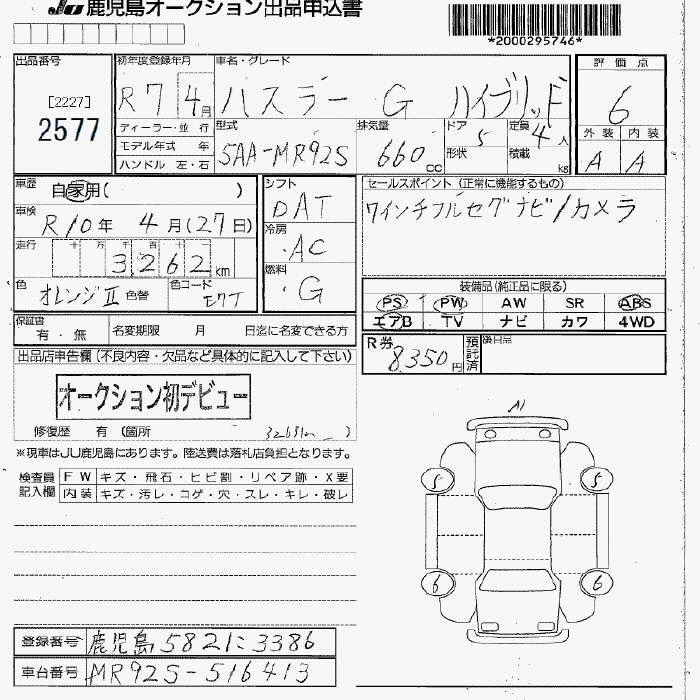 JU 鹿児島オークション出品申込書
*2000295746*
出品番号
[2227]
2577
初年度登録年月
R7 4月
車名・グレード
ハスラー G ハイブリッド
評価点
6
外装 内装
A A
ディーラー・並行
モデル年式 年
ハンドル 左・右
型式
5AA-MR92S
排気量
660cc
ドア 5
形状
定員 4人
積載 kg
車歴
自家用( )
車検
R10年 4月(27日)
走行
十 万 千 百 十 一
3,262km
色
オレンジⅡ 色替
色コード
シフト
DAT
冷房
AC
燃料
G
セールスポイント (正常に機能するもの)
7インチフルセグナビ/カメラ
装備品(純正品に限る)
PS PW AW SR ABS
エアB TV ナビ カワ 4WD
保証書
有・無
名変期限 月 日迄に名変できる方
R券
8,350円
預託済
後日品
出品店申告欄(不良内容・欠品など具体的に記入して下さい)
オークション初デビュー
修復歴 有 (箇所 )
※現車はJU鹿児島にあります。陸送費は落札店負担となります。
検査員記入欄
FW キズ・飛石・ヒビ割・リペア跡・X要
内装 キズ・汚レ・コゲ・穴・スレ・キレ・破レ
A1
5 5
6 6
登録番号 鹿児島582に3386
車台番号 MR92S-516413